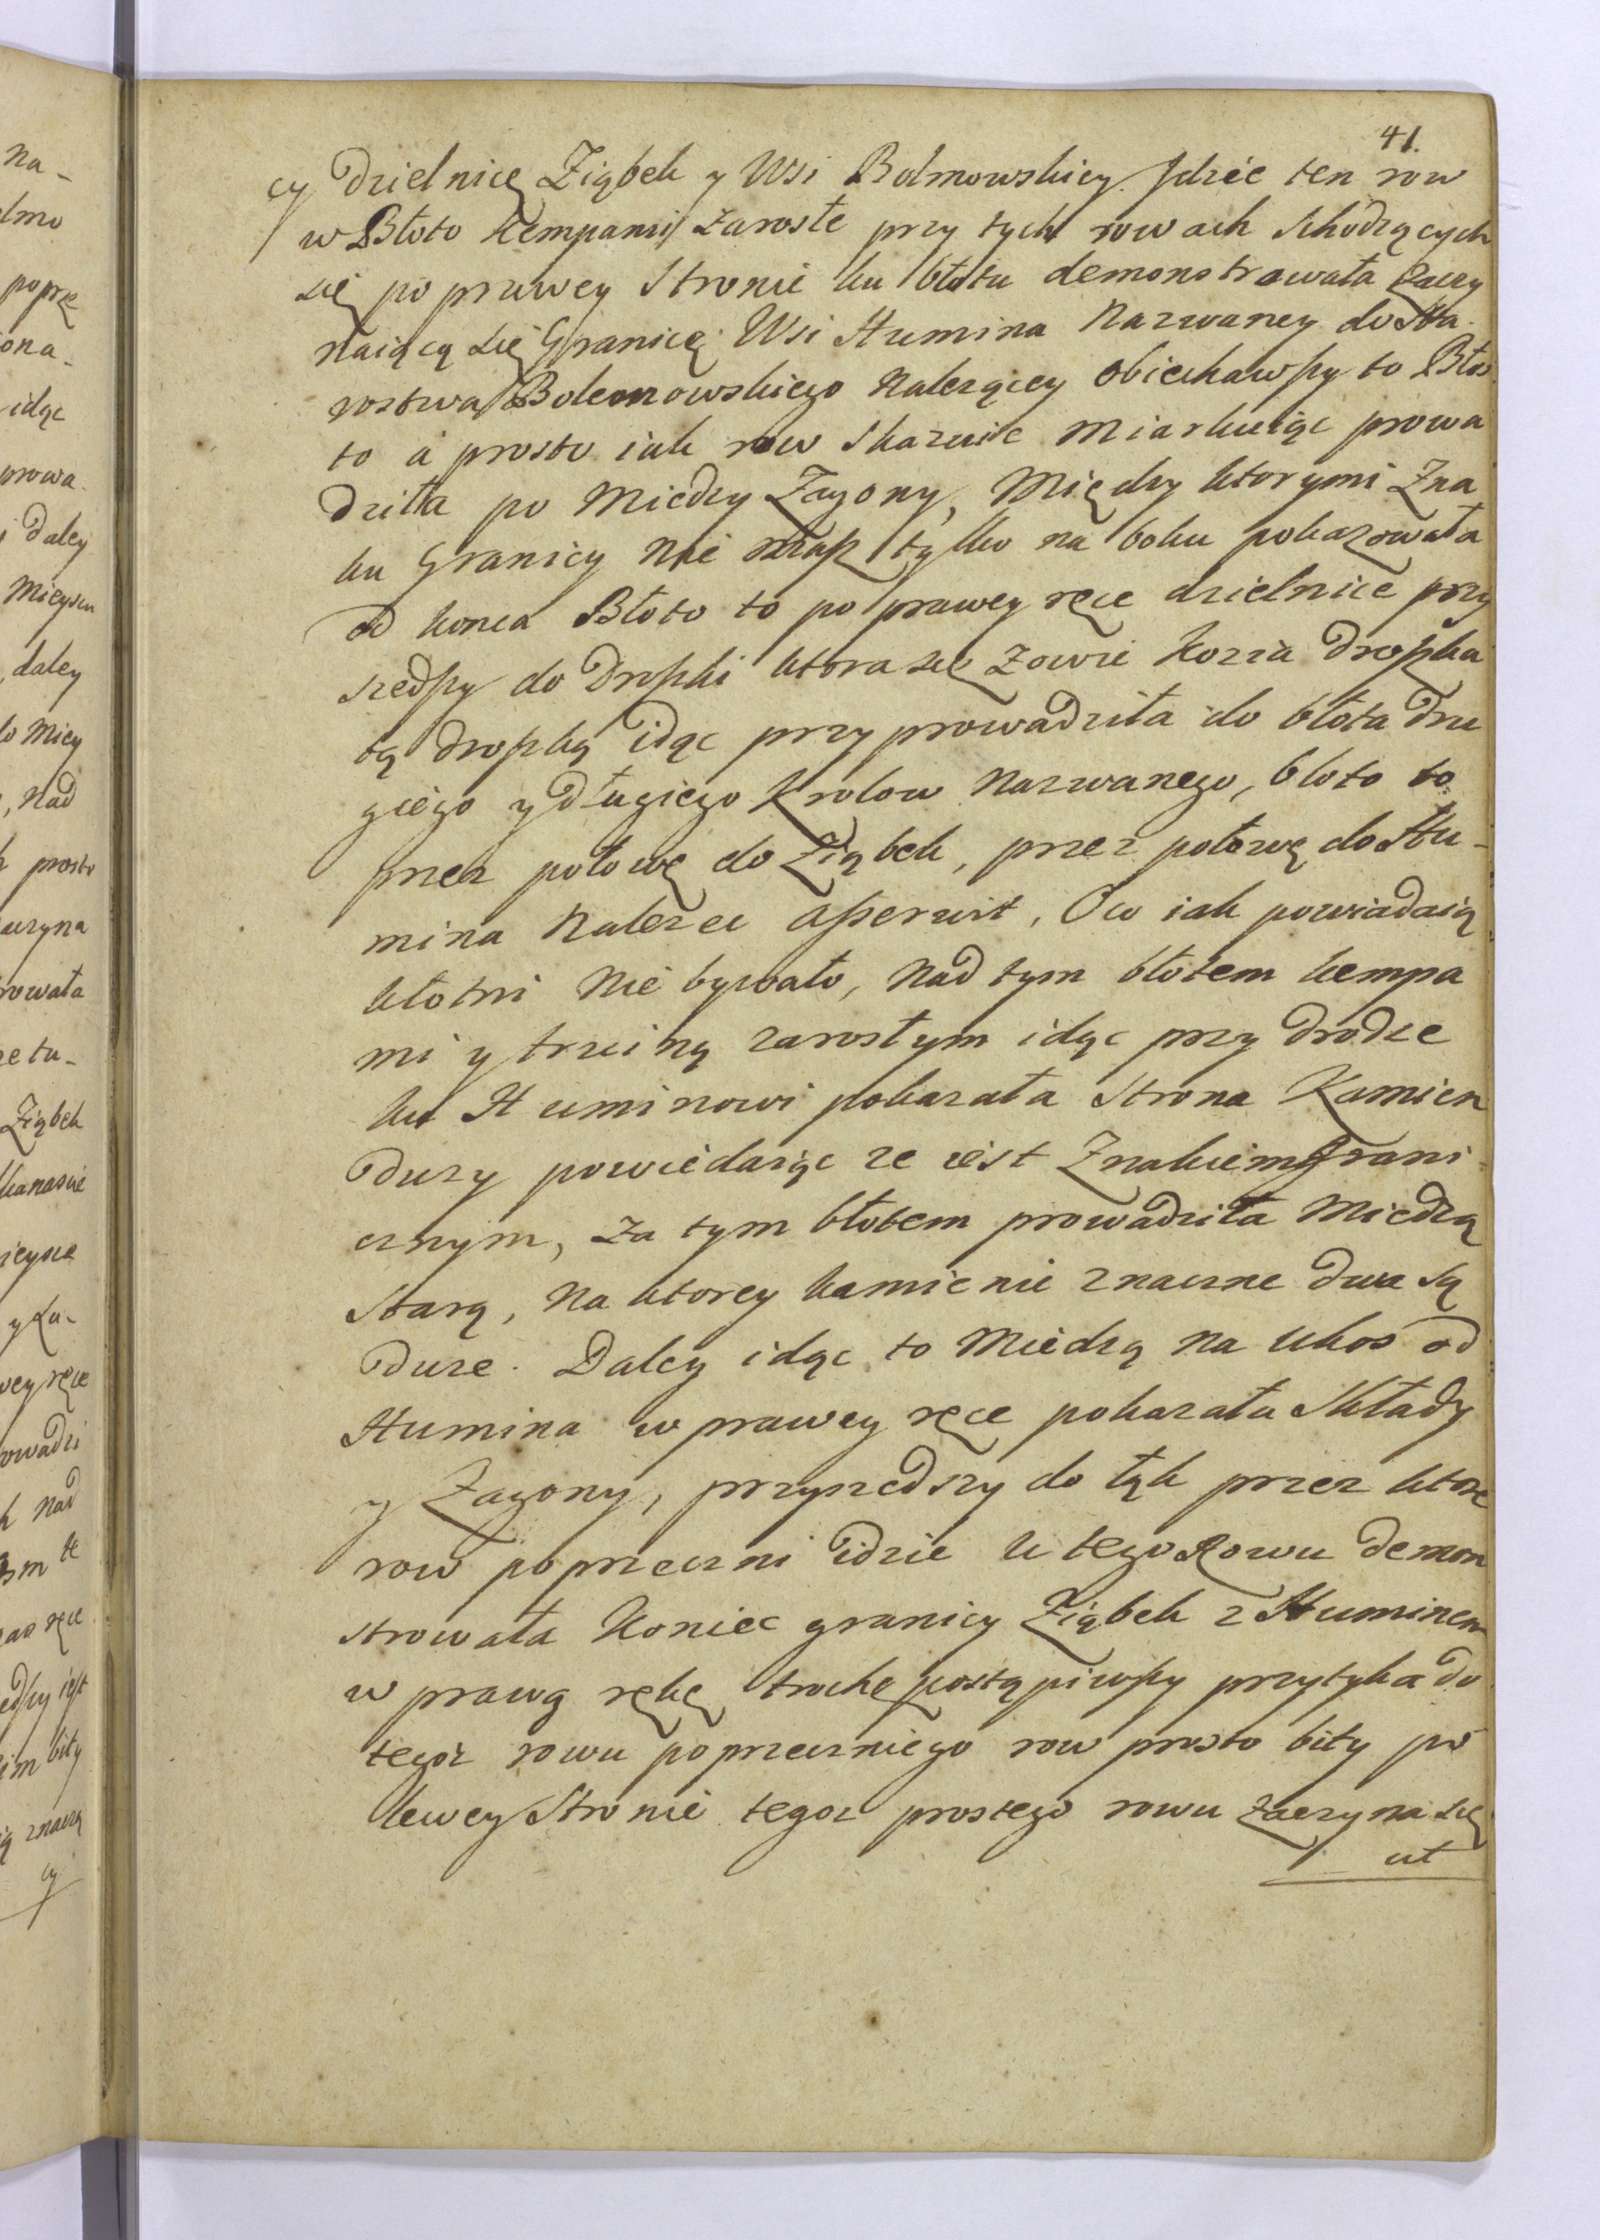 41.
cy Dzielnicę Ziąbek y Wsi Bolmowskiey. Jdzie ten row
w Błoto kempami zarosłe przy tych rowach schodzących
się po prawey Stronie ku błotu demonstrowała zaczy
naiącą się Granicę Wsi Humina Nazwaney do Sta
rostwa Bolemowskiego Nalezącey obiechawszy to Bło
to a prosto iak row skazuie miarkuiąc prowa
dziła po Miedzy Zagony, Między ktorymi Zna
ku Granicy nie masz tylko na boku pokazowała
od konca Błoto to po prawey ręce dzielnice przy
szedszy do Drozki ktora się zowie Kozia Drozka
tą drozką idąc przyprowadziła do błota dru
giego y długiego Krolow Nazwanego, błoto to
przez połowę do Ziąbek, przez połowę do Hu-
mina Nalezec asseruit, O co iak powiadaią
kłotni nie bywało, Nad tym błotem kempa
mi y trzciną zarosłym idąc przy drodze
ku Huminowi pokazała Strona Kamien
duzy powiedaiąc ze iest Znakiem Grani
cznym, za tym błotem prowadziła Miedzą
Starą, na ktorey kamienie znaczne dwa są
duze. Daley idąc to Miedzą na ukos od
Humina w prawey ręce pokazała Składy
y Zagony, przyszedszy do łąk przez ktore
row poprzeczni idzie u tego Rowu demon
strowała Koniec granicy Ziąbek z Huminem
w prawą rękę troche postąpiwszy przytyka do
tegoz rowu poprzeczniego row prosto bity po
lewey Stronie tegoz prostego rowu zaczyna się